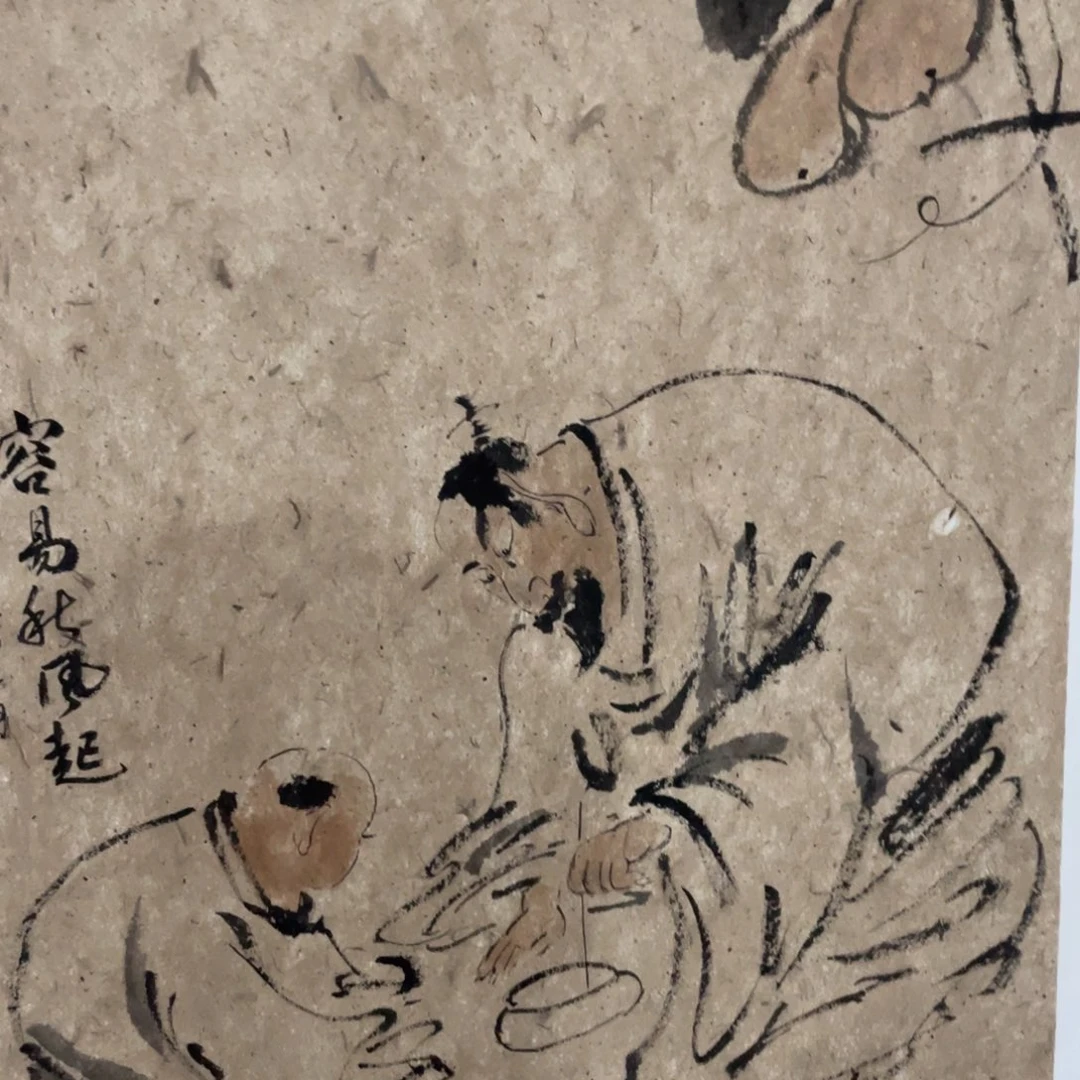 容易秋風起